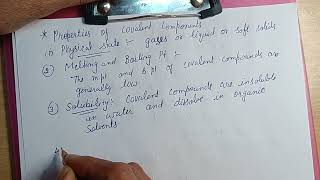 * Properties of Covalent Components
(1) Physical state :- gases or liquid or soft solids
(2) Melting and Boiling Pt :-
The m.pt and b.pt of covalent compounds are
generally low.
(3) Solubility :- Covalent compounds are insoluble
in water and dissolve in organic
Solvents